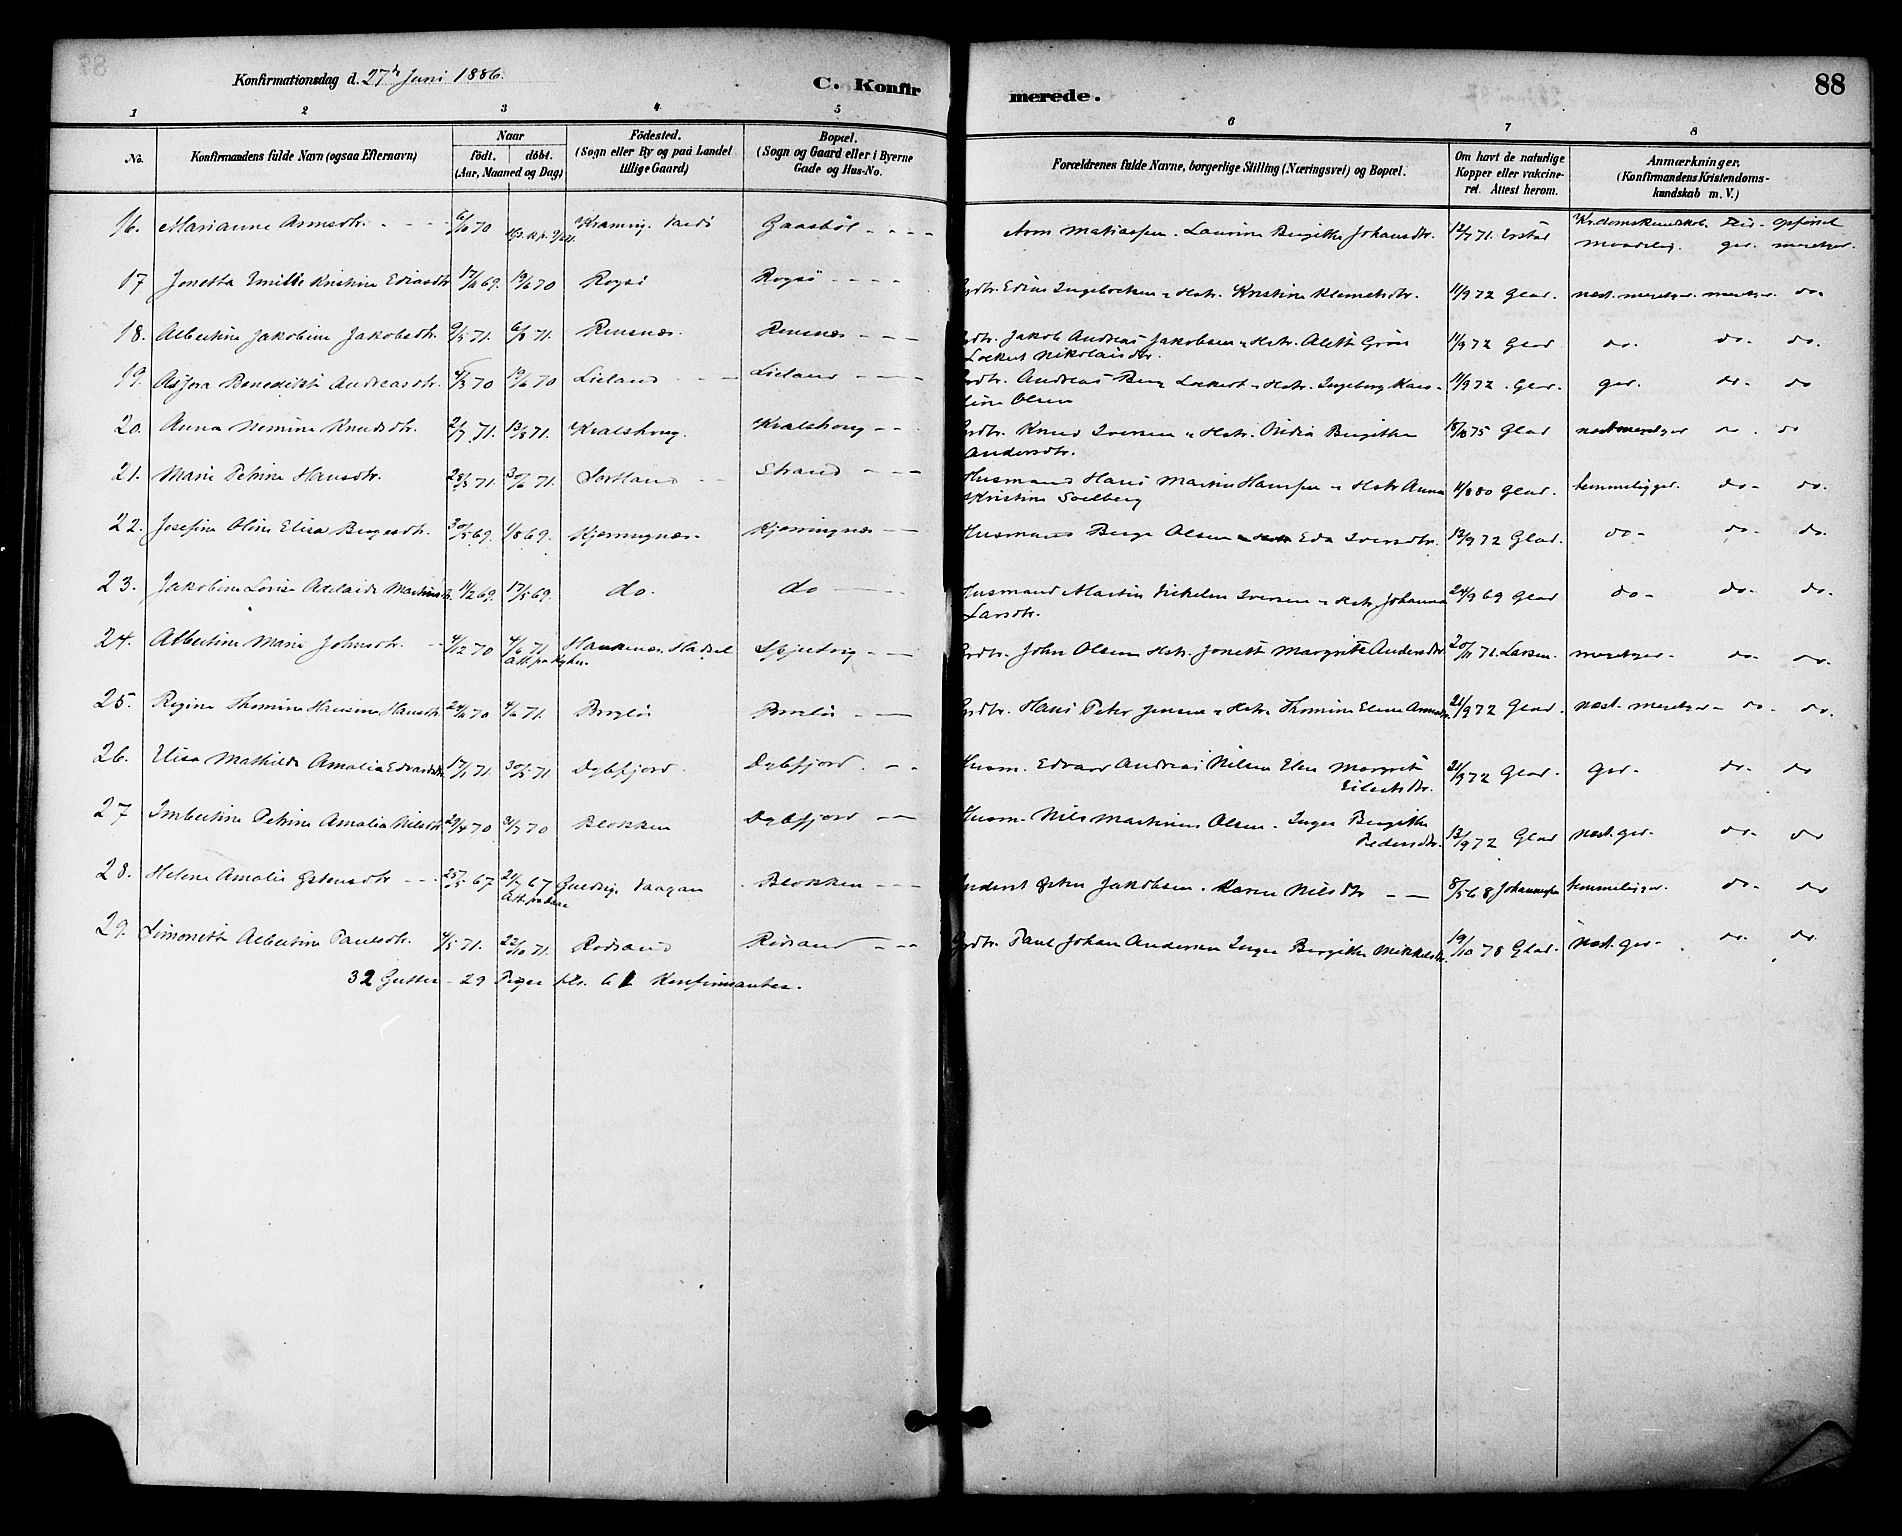 Konfirmationsdag d. 27de Juni 1886.
C. Konfirmerede.
88
1 2 3 4 5 6 7 8
No. Konfirmandens fulde Navn (ogsaa Efternavn) Naar födt. döbt. (Aar, Maaned og Dag) Födested. (Sogn eller By og paa Landet tillige Gaard) Bopæl. (Sogn og Gaard eller i Byerne Gade og Hus-No. Forældrenes fulde Navne, borgerlige Stilling (Næringsvei) og Bopæl. Om havt de naturlige Kopper eller vakcineret. Attest herom. Anmærkninger. (Konfirmandens Kristendomskundskab m. V.)
16. Marianne Arnsdtr. 70 Gaasböl Aron Mathiassen. Laurine Birgitte Johansdtr. 12/7 71. Kr.domskundskab Flid Opförsel
maadelig. gd. megetgd.
17 Jonetta Emilie Kristine Ediasdtr 17/11 69. 19/6 70 Rogsö Rogsö Gdbr. Edias Ingebrektsen Hstr. Kristine Klemetsdtr. 11/9 72 Glad. næst. megetgd. megetgd. do.
18. Albertine Jakobine Jakobsdtr. 9/5 71. 6/8 71. Rensnæs. Rensnæs Gdbr. Jakob Andreas Jakobsen Hstr. Aleth Grön
Lockert Nikolaisdtr. 11/9 72 Glad do. do. do.
19. Benedikte Andreasdtr. 4/3 70 19/6 70 Lieland Lieland Gdbr. Andreas Berg Lockert Hstr. Ingeborg Karoline Olsen 11/9 72. Glad. gd. do. do
20. Anna Nimine Knudsdtr. 2/7 71. 13/8 71. Kvalshoug. Kvalshoug Gdbr. Knud Iversen Hstr. Birgitte
Andersdtr. 18/10 75 Glad næst megetgd do. do
21. Marie Petrine Hansdtr. 28/3 71. 30/6 71. Sortland Strand Husmand Hans Martin Hansen Hstr Anna
Kristine Solberg 11/8 80 Glad. temmelig gd. do. do.
22. Josefine Oline Elisa Bergesdtr. 30/5 69. 1/8 69. Kjerringnæs. Kjerringnæs Husmand Berge Olsen Eda Iversdtr. 13/9 72 Glad. do. do. do.
23. Jakobine Lovise Adelaide Martinsd. 14/2 69. 17/5 69. do. do Husmand Martin Vikelm Iversen Hstr Johanna
Larsdtr. 24/9 69 Glad do. do. do.
24. Albertine Marie Johnsdtr. 4/12 70 4/6 71 Haukenæs Hadsel Gdbr. John Olsen Hstr. Jonette Margrete Andersdtr 20/11 71. Larsen. megetgd. do. do.
25. Regine Thomine Hansine Hansdtr. 24/10 70 4/6 71. Gdbr. Hans Peter Jensen Hstr. Thomine Elene 21/9 72 Glad. næst. megetgd. do. do.
26. Elisa Mathilde Amalia Edvardsdtr. 17/1 71. 30/5 71. Dybfjord. Dybfjord. Husm. Edvard Andreas Nilsen Elen Margrete
Eilertsdtr. 21/9 72 Glad. gd. do. do
27 Imbertine Petrine Amalia Nilsdtr 29/4 70 31/7 70 Blokken Dybfjord Husm. Nils Martinus Olsen. Inger Birgitte
Pedersdtr. 13/9 72 Glad næst. gd. do. do
28. Helene Amalie Östensdtr 25/5 67 21/7 67 Vaagan Blokken Inderst Östen Jakobsen. Karen Nilsdtr 8/5 68 Johannesen temmeliggd. do. do
29. Simonette Albertine Paulsdtr. 4/5 71. 22/10 71. Rödsand Rödsand Gdbr. Paul Johan Andersen Inger Birgitte Mikkelsdtr. 19/10 78 Glad. næst. gd. do. do.
32 Gutter - 29 Piger tils. 61 Konfirmanter.